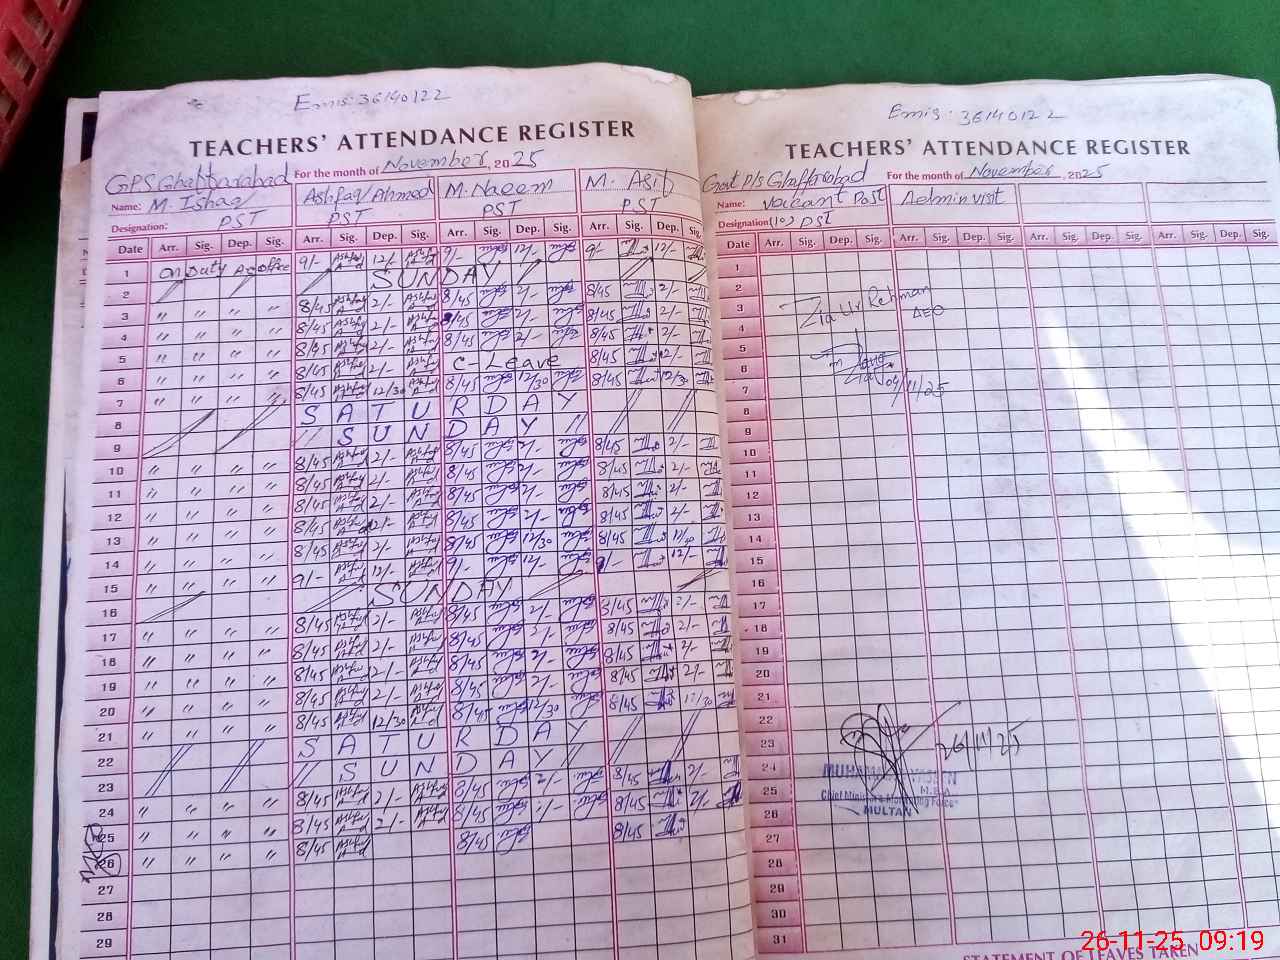 Emis: 36140122
TEACHERS' ATTENDANCE REGISTER
GPS Ghaffarabad For the month of November, 2025
Name: M. Ishaq Ashfaq Ahmed M. Naeem M. Asif
Designation: PST PST PST PST
Date Arr. Sig. Dep. Sig. Arr. Sig. Dep. Sig. Arr. Sig. Dep. Sig. Arr. Sig. Dep. Sig.
1 On Duty Aeo office 9/- 12/- 9/- 12/- 9/- 12/-
2 SUNDAY
3 " " " " 8/45 2/- 8/45 2/- 8/45 2/-
4 " " " " 8/45 2/- 8/45 2/- 8/45 2/-
5 " " " " 8/45 2/- 8/45 2/- 8/45 2/-
6 " " " " 8/45 2/- C-Leave 8/45 2/-
7 " " " " 8/45 12/30 8/45 12/30 8/45 12/30
8 SATURDAY
9 SUNDAY
10 " " " " 8/45 2/- 8/45 2/- 8/45 2/-
11 " " " " 8/45 2/- 8/45 2/- 8/45 2/-
12 " " " " 8/45 2/- 8/45 2/- 8/45 2/-
13 " " " " 8/45 2/- 8/45 2/- 8/45 2/-
14 " " " " 8/45 2/- 8/45 12/30 8/45 12/30
15 " " " " 9/- 12/- 9/- 12/- 9/- 12/-
16 SUNDAY
17 " " " " 8/45 2/- 8/45 2/- 8/45 2/-
18 " " " " 8/45 2/- 8/45 2/- 8/45 2/-
19 " " " " 8/45 2/- 8/45 2/- 8/45 2/-
20 " " " " 8/45 2/- 8/45 2/- 8/45 2/-
21 " " " " 8/45 12/30 8/45 12/30 8/45 12/30
22 SATURDAY
23 SUNDAY
24 " " " " 8/45 2/- 8/45 2/- 8/45 2/-
25 " " " " 8/45 2/- 8/45 8/45 2/-
26 " " " " 8/45 8/45 8/45
27
28
29
Emis: 36140122
TEACHERS' ATTENDANCE REGISTER
Govt P/S Ghaffarabad For the month of November, 2025
Name: Vacant Post Admin visit
Designation: PST
Date Arr. Sig. Dep. Sig. Arr. Sig. Dep. Sig. Arr. Sig. Dep. Sig. Arr. Sig. Dep. Sig.
1
2
3 Zia Ur Rehman
4 AEO
5
6
7 04/11/25
8
9
10
11
12
13
14
15
16
17
18
19
20
21
22
23 26/11/25
24
25 Chief Minister's Monitoring Force
26 MULTAN
27
28
29
30
31
STATEMENT OF LEAVES TAKEN
26-11-25 09:19